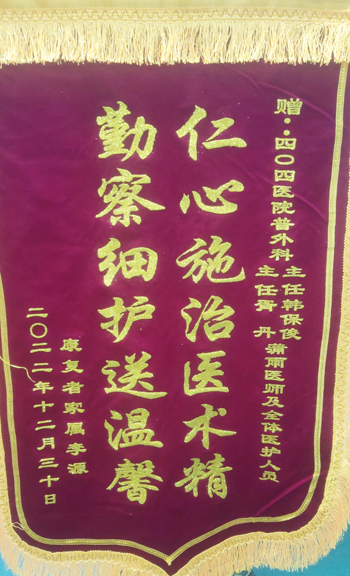 赠:四〇四医院普外科 主任韩保俊 主任胥丹 萧雨医师及全体医护人员
仁心施治医术精
勤察细护送温馨
康复者家属李源
二〇二二年十二月三十日